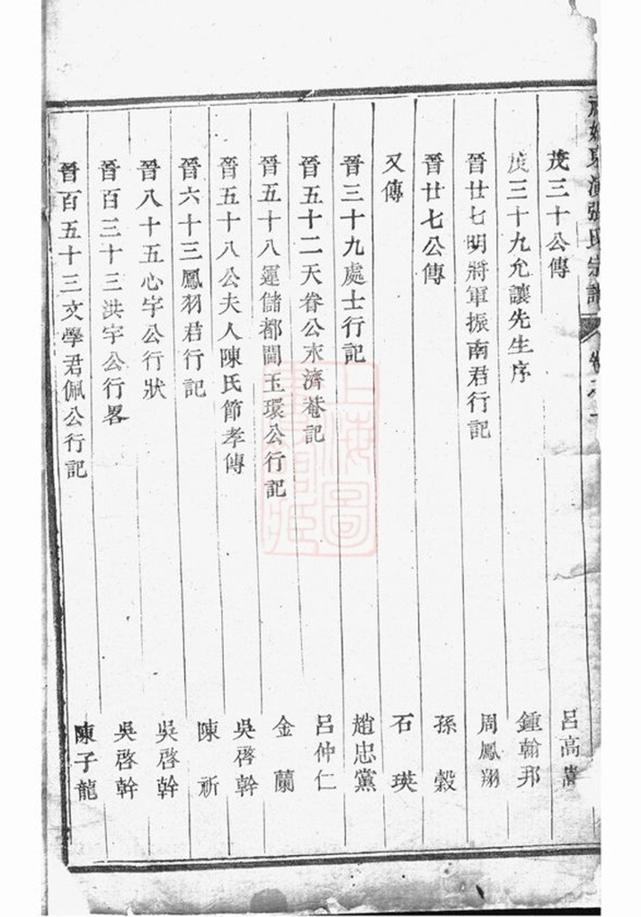 張氏宗譜 卷
茂三十公傳 呂高
茂三十九允讓先生序 鍾翰邦
晉廿七明將軍振南君行記 周鳳翔
晉廿七公傳 孫穀
又傳 石瑛
晉三十九處士行記 趙忠黨
晉五十二天眷公永濟菴記 呂仲仁
晉五十八運儲都閫玉環公行記 金蘭
晉五十八公夫人陳氏節孝傳 吳啓幹
晉六十三鳳羽君行記 陳祈
晉八十五心宇公行狀 吳啓幹
晉百三十三洪宇公行畧 吳啓幹
晉百五十三文學君佩公行記 陳子龍
上海圖書館藏